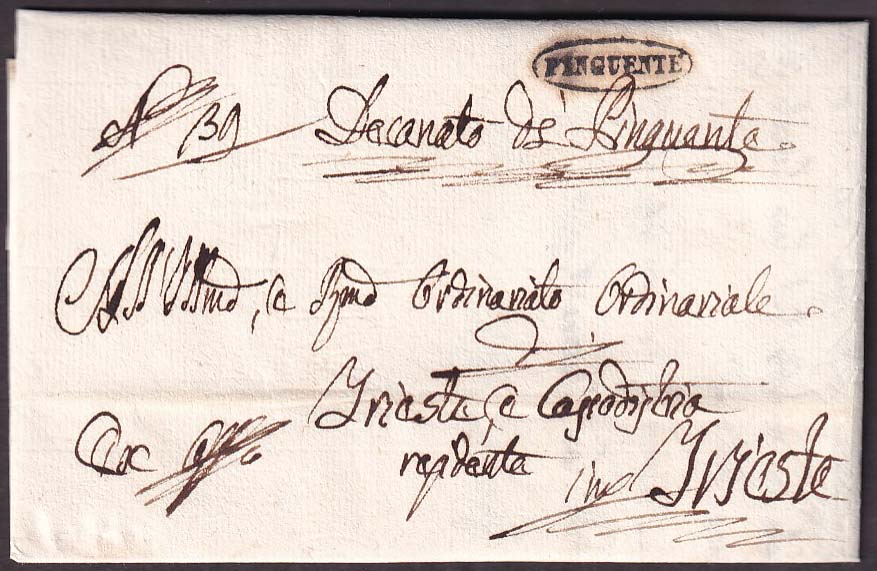 PINGUENTE
N 139 Decanato di Pinguente.
Illmo, e Rmo Ordinariato Ordinariale.
di
Trieste, e Capodistria
Ex Offo residente in Trieste